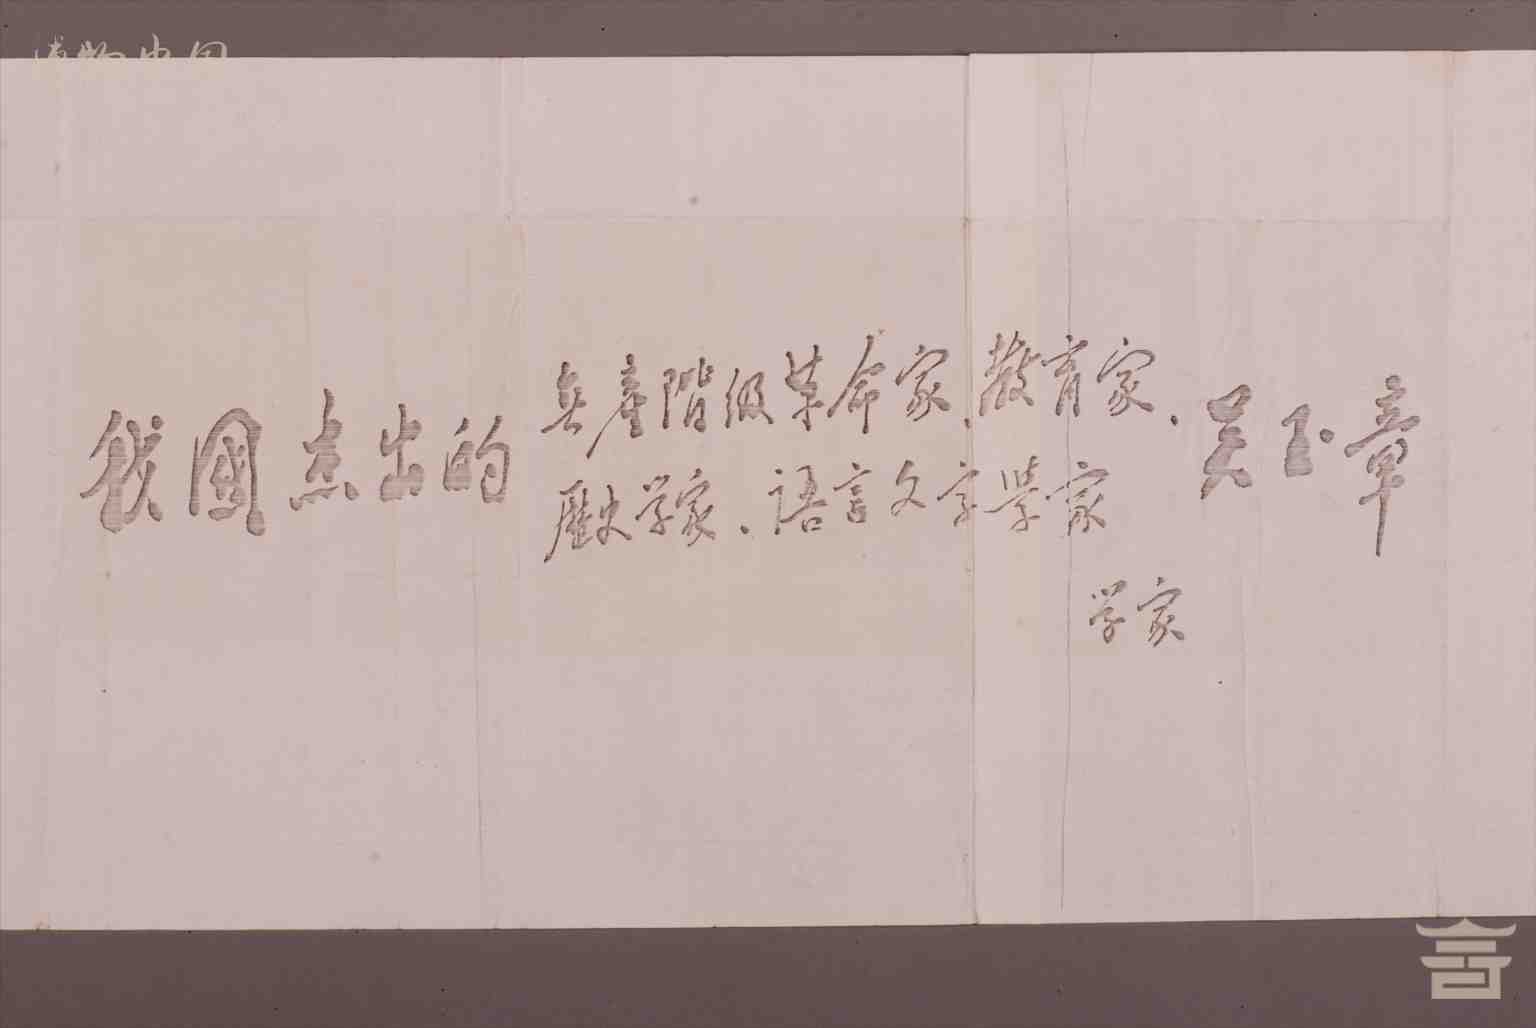 博物中国
我國杰出的
無產階級革命家、教育家、
歷史学家、語言文字學家
学家
吴玉章